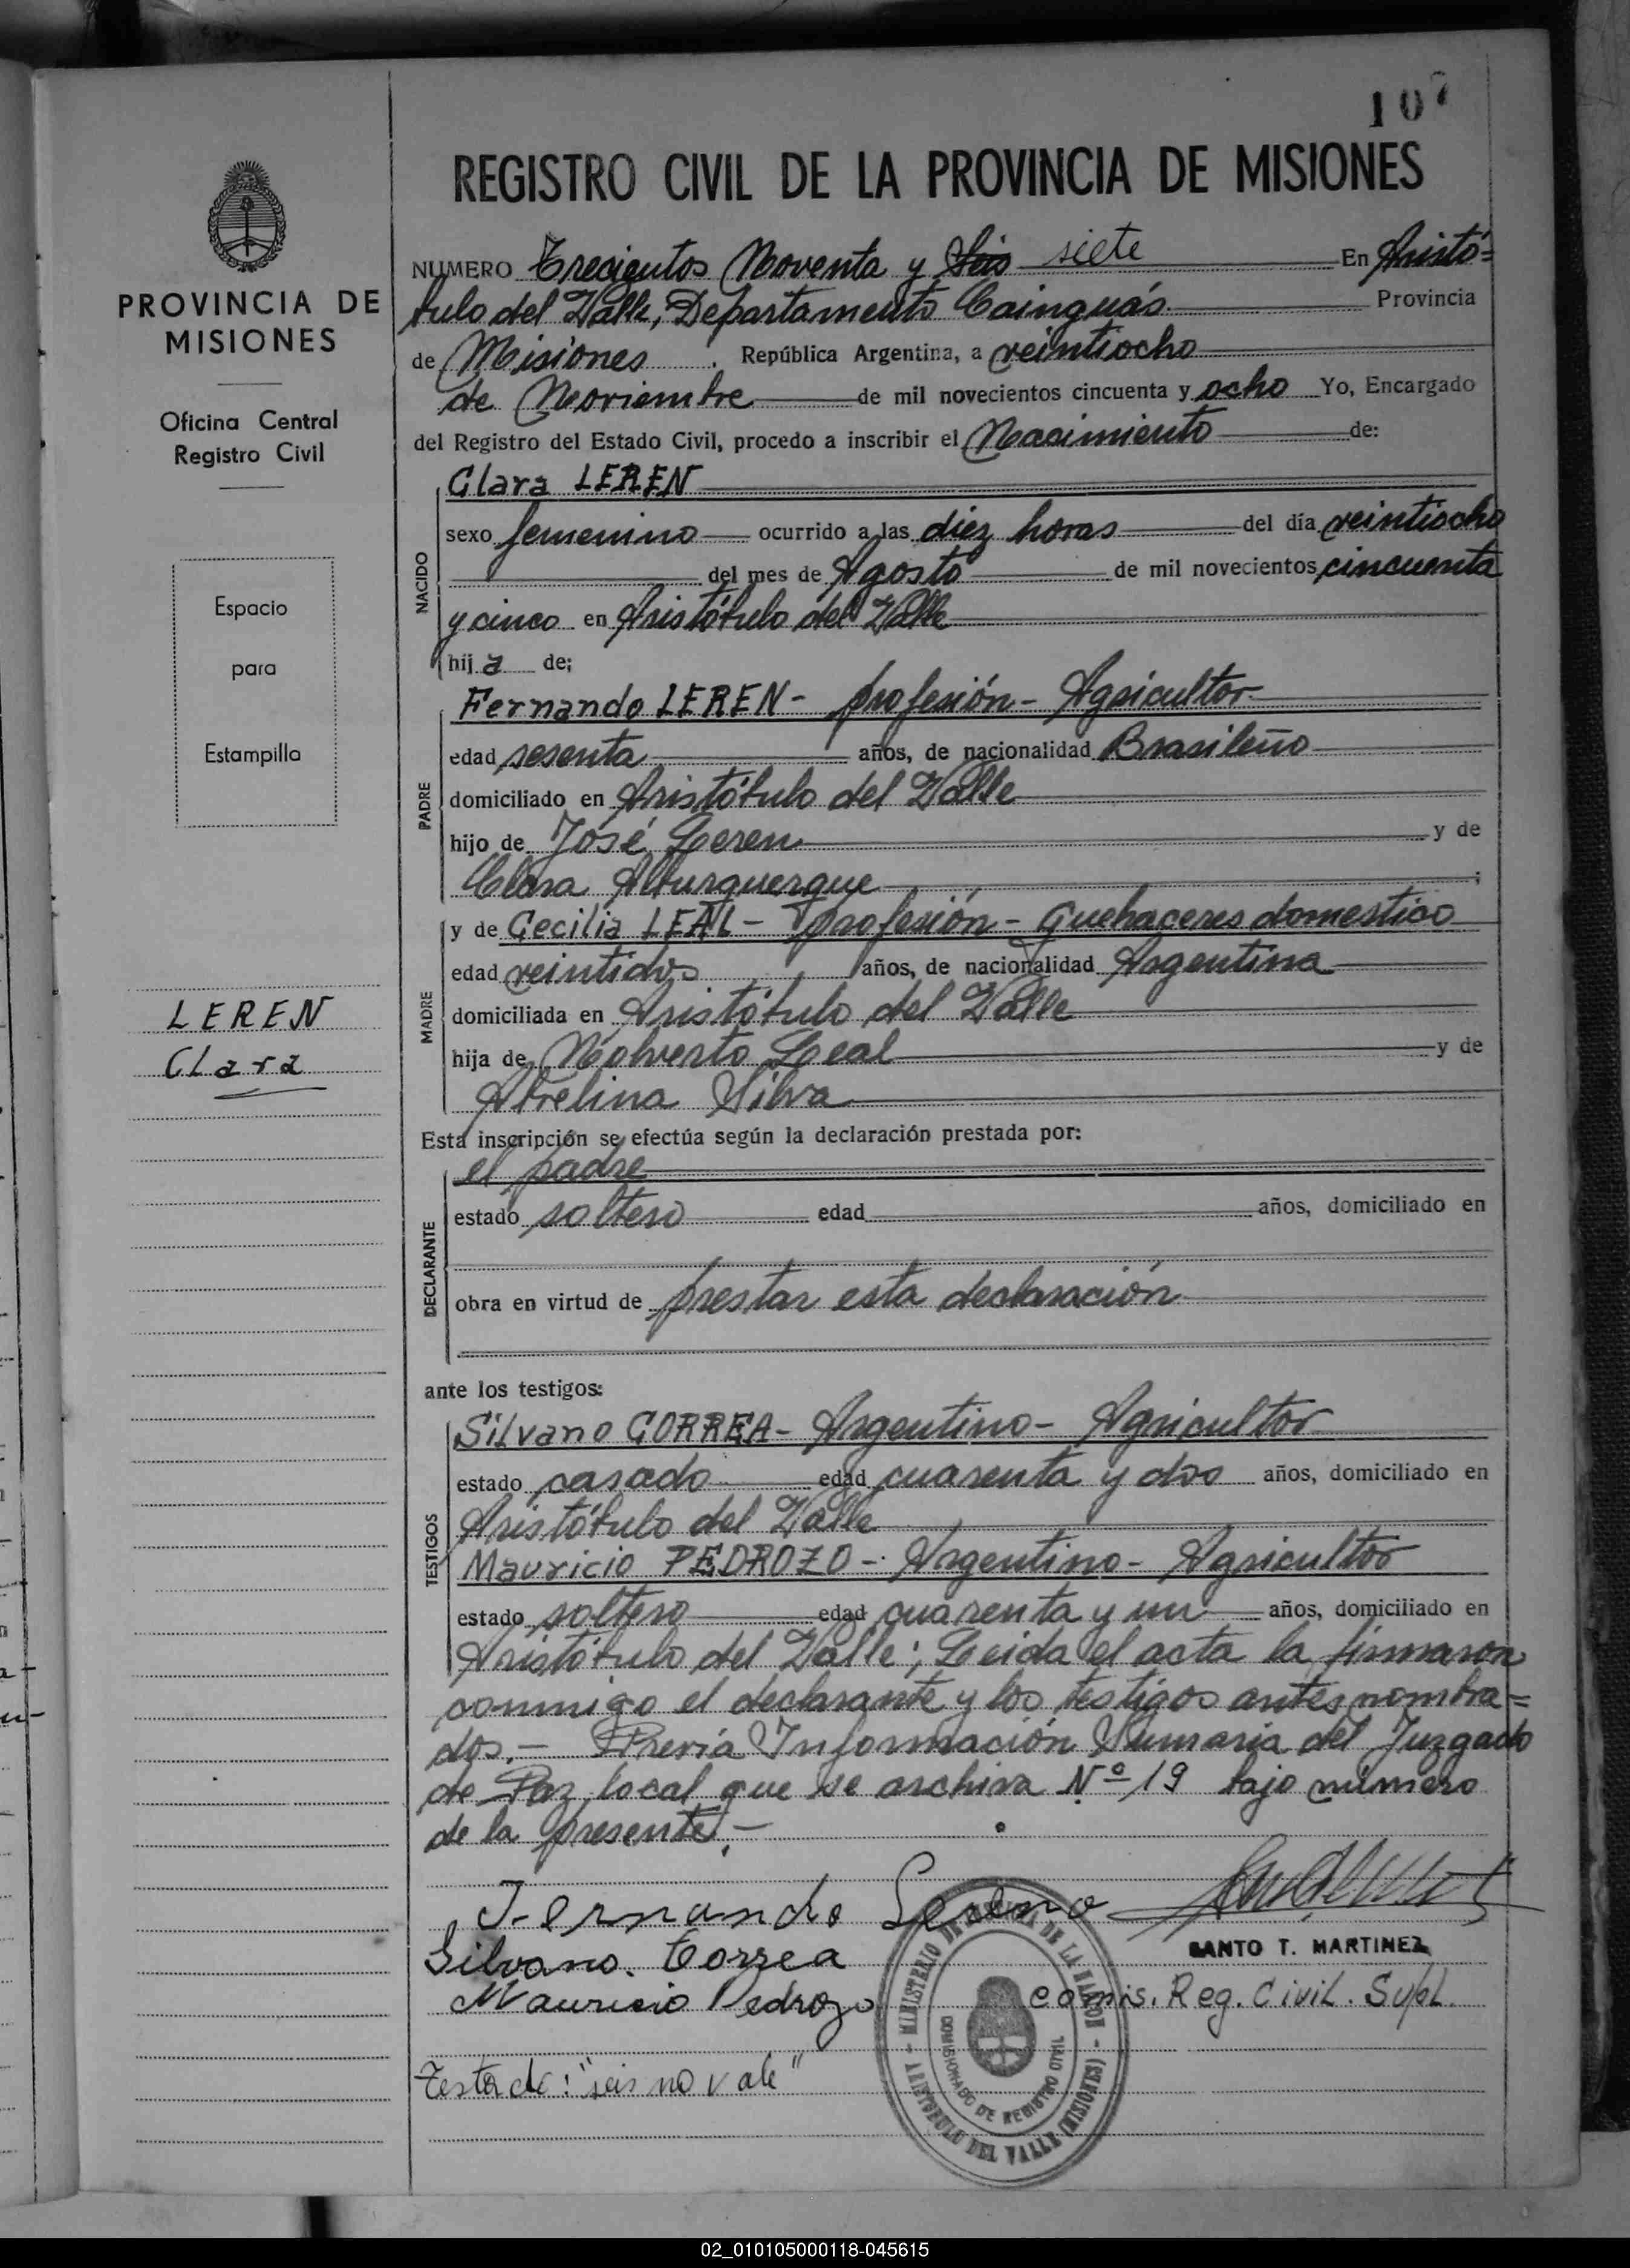 107
REGISTRO CIVIL DE LA PROVINCIA DE MISIONES
NUMERO Trecientos Noventa y Seis siete En Aristó=
tulo del Valle, Departamento Cainguás Provincia
de Misiones. República Argentina, a veintiocho
de Noviembre de mil novecientos cincuenta y ocho Yo, Encargado
del Registro del Estado Civil, procedo a inscribir el Nacimiento de:
PROVINCIA DE
MISIONES
Oficina Central
Registro Civil
Espacio
para
Estampilla
LEREN
Clara
NACIDO
Clara LEREN
sexo femenino ocurrido a las diez horas del día veintiocho
del mes de Agosto de mil novecientos cincuenta
y cinco en Aristótulo del Valle
hija de;
PADRE
Fernando LEREN - profesión - Agricultor
edad sesenta años, de nacionalidad Brasileño
domiciliado en Aristótulo del Valle
hijo de José Leren y de
Clara Alburquerque ;
MADRE
y de Cecilia LEAL - profesión - Quehaceres domestico
edad veintidos años, de nacionalidad Argentina
domiciliada en Aristótulo del Valle
hija de Nolverto Leal y de
Avelina Silva
Esta inscripción se efectúa según la declaración prestada por:
DECLARANTE
el padre
estado soltero edad años, domiciliado en
obra en virtud de prestar esta declaración
ante los testigos:
TESTIGOS
Silvano CORREA - Argentino - Agricultor
estado casado edad cuarenta y dos años, domiciliado en
Aristótulo del Valle
Mauricio PEDROZO - Argentino - Agricultor
estado soltero edad cuarenta y un años, domiciliado en
Aristótulo del Valle; Leida el acta la firmaron
conmigo el declarante y los testigos antes nombra=
dos.- Previa Información Sumaria del Juzgado
de Paz local que se archiva Nº 19 bajo número
de la presente.-
Fernando Lereno
Silvano. Correa
Mauricio Pedrozo
SANTO T. MARTINEZ
comis. Reg. Civil. Supl.
MINISTERIO DE DE LA NACION - ARISTOBULO DEL VALLE (MISIONES) -
COMISIONADO DE REGISTRO CIVIL
Testado: "seis no vale"
02_010105000118-045615